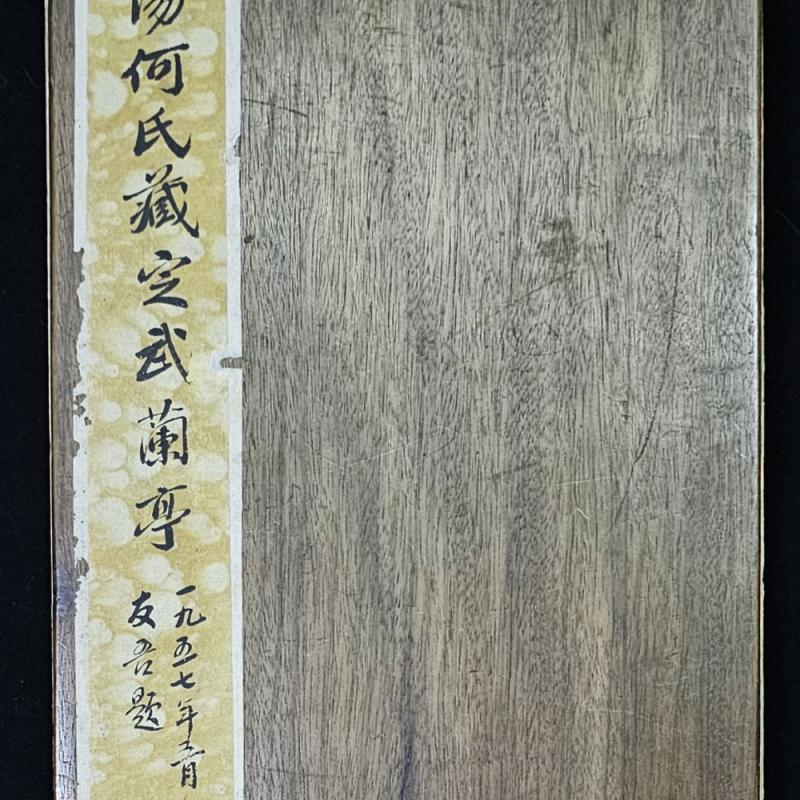 何氏藏定武蘭亭
一九五七年五月
友吾題